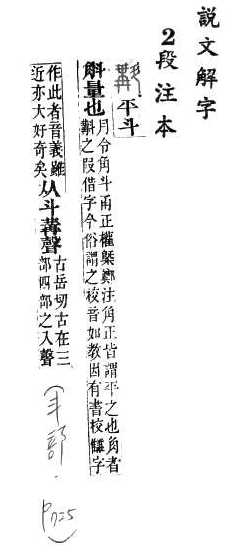 說文解字
2段注本
斠 平斗
斛量也
月令角斗甬正權槩鄭注角正皆謂平之也角者
斠之叚借字今俗謂之校音如教因有書校讎字
作此者音義雖
近亦大好奇矣
从斗冓聲
古岳切古在三
部四部之入聲
(斗部. P725)